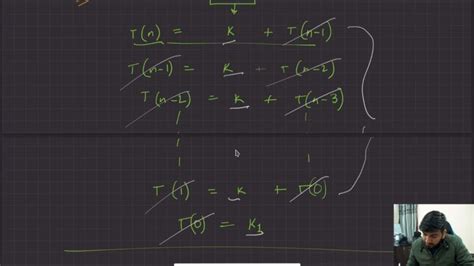 T(n) = K + T(n-1)
T(n-1) = K + T(n-2)
T(n-2) = K + T(n-3)
T(1) = K + T(0)
T(0) = K₁